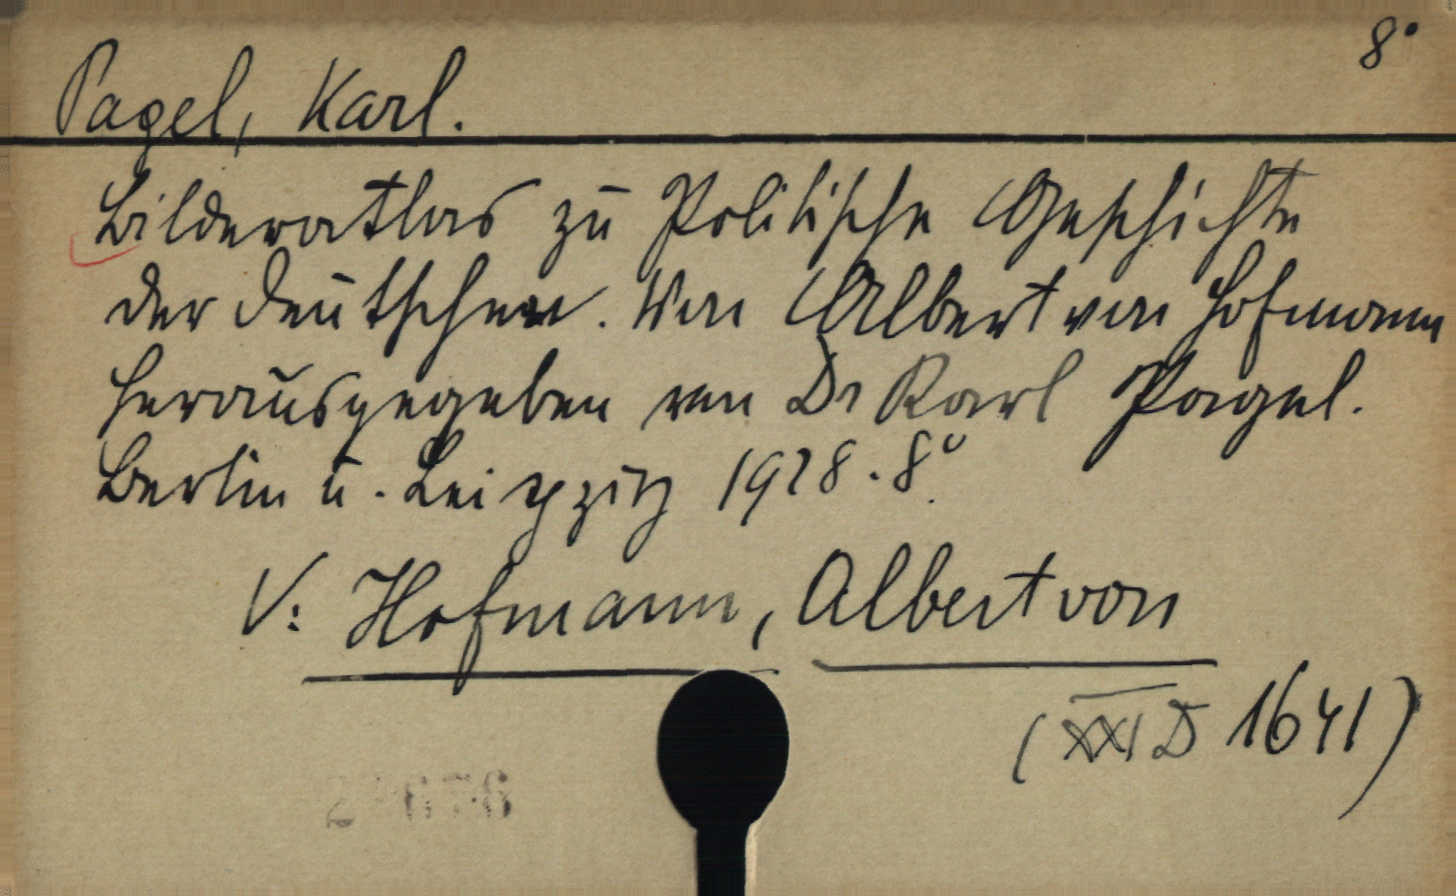 8°
Pagel, Karl.
Bilderatlas zu Politische Geschichte
der Deutschen. Von Albert von Hofmann
herausgegeben von Dr Karl Pagel.
Berlin u. Leipzig 1928. 8°
V: Hofmann, Albert von
(XXI D 1641)